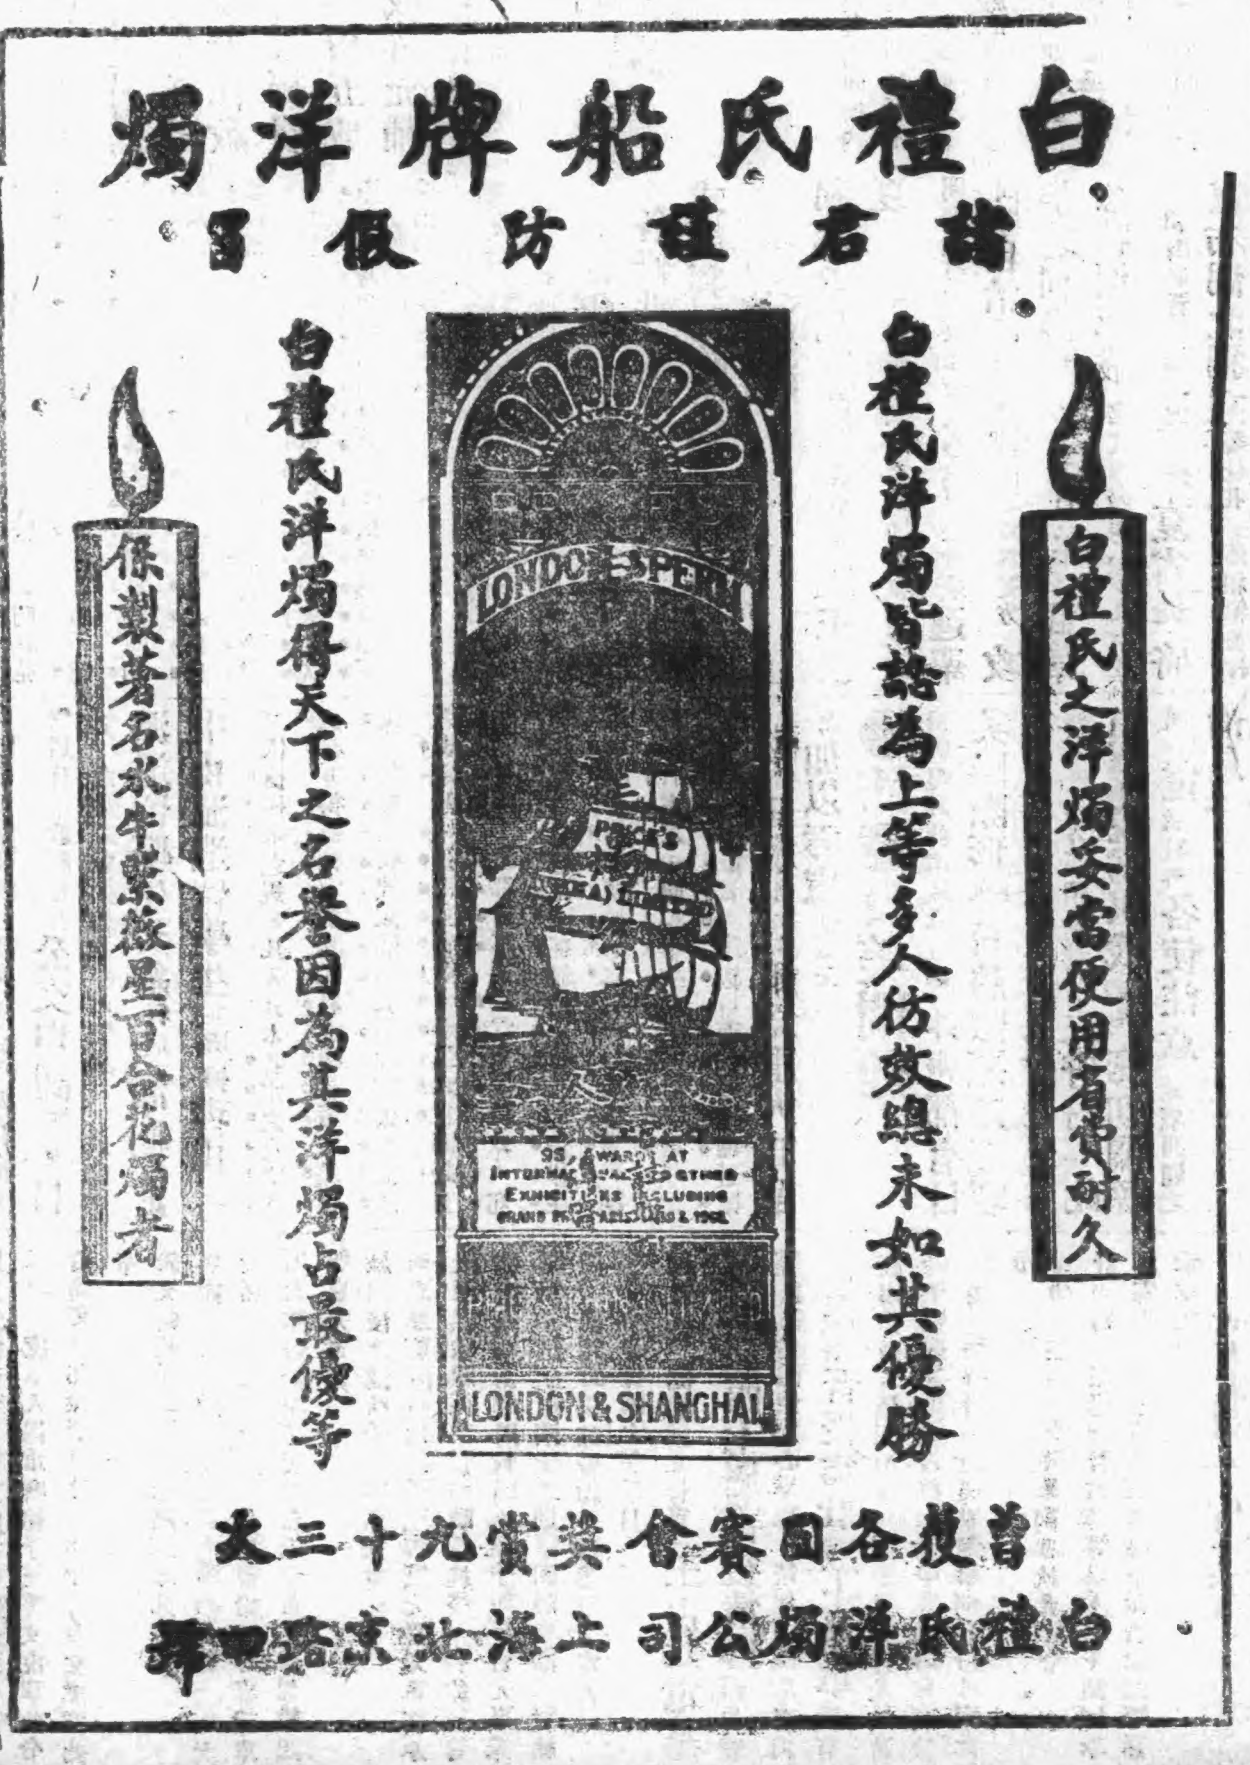 白禮氏船牌洋燭
諸君謹防假冒
白禮氏之洋燭妥當便用省費耐久
白禮氏洋燭皆認為上等多人彷效總未如其優勝
LONDON SPERM
PRICE'S
LIMITED
95, AWARDS AT
INTERNATIONAL AND OTHER
EXHIBITIONS INCLUDING
GRAND PRIX PARIS 1900 &
LONDON & SHANGHAI
白禮氏洋燭得天下之名譽因為其洋燭占最優等
保製著名水牛紫薇星百合花燭者
曾獲各國賽會獎賞九十三次
白禮氏洋燭公司上海北京路四號